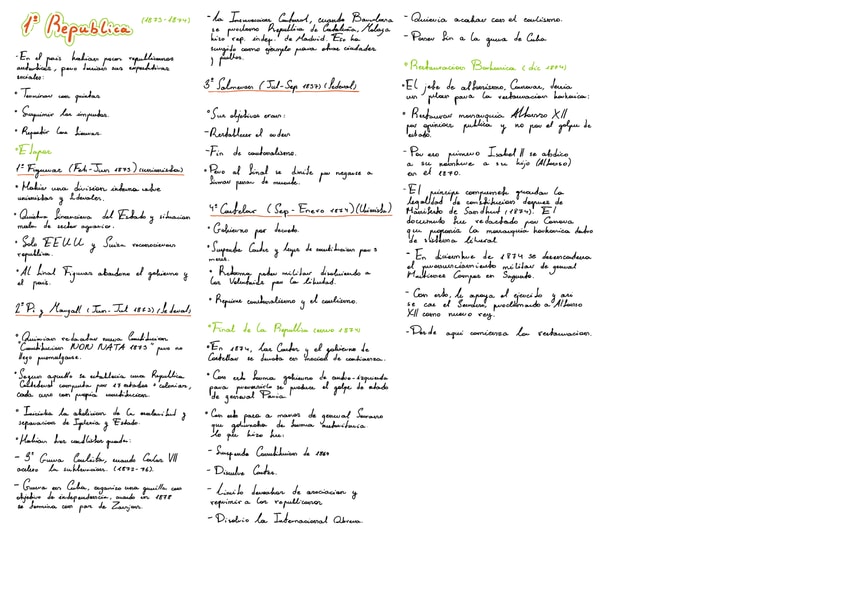 1ª Republica (1873-1874)
- En el pais habian pocos republicanos
autenticos, pero tenian sus expectativas
sociales:
• Terminar con quintas
• Suprimir los impuestos.
• Repartir las tierras.
• Etapas
1ª Figueras (Feb-Jun 1873) (unionistas)
• Habia una division interna entre
unionistas y federales.
• Quiebra financiera del Estado y situacion
mala de sector agrario.
• Solo EEUU y Suiza reconocieron
republica.
• Al final Figueras abandona el gobierno y
el pais.
2ª Pi y Margall (Jun-Jul 1873) (federal)
• Quieran redactar nueva Constitucion
"Constitucion NON NATA 1873" pero no
llego promulgarse.
• Segun aquello se establecia una Republica
compuesta por 17 estados + colonias,
cada uno con propia constitucion.
• Iniciaba la abolicion de la esclavitud y
separacion de Iglesia y Estado.
• Habian tres conflictos grandes:
- 3ª Guerra Carlista, cuando Carlos VII
acelero la sublevacion. (1872-76).
- Guerra en Cuba, organizo una guerilla con
objetivo de independencia, cuando en 1878
se termina con paz de Zanjon.
- La Insurreccion Cantonal, cuando Barcelona
se proclamo Republica de Cataluña, Malaga
hizo rep. indep. de Madrid. Eso ha
surgido como ejemplo para otras ciudades
y pueblos.
3ª Salmeron (Jul-Sep 1837) (federal)
• Sus objetivos eran:
- Restablecer el orden
- Fin de cantonalismo.
• Pero al final se dimite por negarse a
firmar penas de muerte.
4ª Castelar (Sep-Enero 1874) (Unionista)
• Gobierno por decreto.
• Suspende Cortes y leyes de constitucion por 3
meses.
• Retoma poder militar disolviendo a
los Voluntarios por la libertad.
• Reprime cantonalismo y el carlismo.
• Final de la Republica (enero 1874)
• En 1874, las Cortes y el gobierno de
Castellar se derrota en mocion de confianza.
• Con esto forma gobierno de centro-izquierda
para prevenirlo se produce el golpe de estado
de general Pavia.
• Con esto pasa a manos de general Serrano
que gobernaba de forma autoritaria
lo que hizo fue:
- Suspende Constitucion de 1869
- Disuelve Cortes.
- Limito derechos de asociacion y
reprimir a los republicanos
- Disolvio la Internacional Obrera.
- Quieria acabar con el carlismo.
- Poner fin a la guerra de Cuba.
• Restauracion Borbonica (dic 1874)
• El jefe de alfonsismo, Canovas, tenia
un pilar para la restauracion borbonica:
• Restaurar monarquia Alfonso XII
por opinion publica y no por el golpe de
estado.
- Por eso primero Isabel II se abdico
a su nombre a su hijo (Alfonso)
en el 1870.
- El principe compromete guardar la
legalidad de constitucion despues de
Manifesto de Sandhurst (1874). El
documento fue redactado por Canova
que proponia la monarquia borbonica dentro
de sistema liberal
- En diciembre de 1874 se desencadena
el pronunciamiento militar de general
Martinez Campos en Sagunto.
- Con esto, le apoya el ejercito y asi
se cae el Serrano, proclamando a Alfonso
XII como nuevo rey.
- Desde aqui comienza la restauracion.